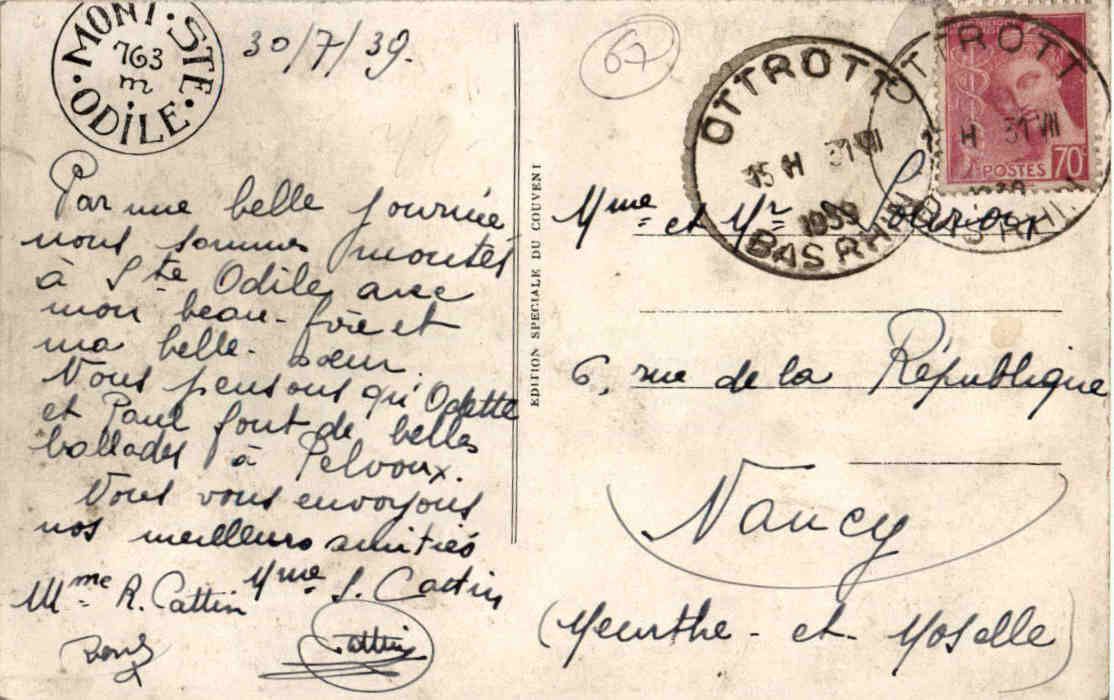 MONT STE ODILE
763
m
30/7/39.
67
OTTROTT
15 H 31 VII
1939
BAS RHIN
OTTROTT
H 31 VII
POSTES 70c
Par une belle journée
nous sommes montés
à Ste Odile avec
mon beau-frère et
ma belle-soeur.
Nous pensons qu'Odette
et Paul font de belles
ballades à Pelvoux.
Nous vous envoyons
nos meilleurs amitiés
Mme R. Cattin Mme S. Cattin
Cattin
EDITION SPECIALE DU COUVENT
Mme et Mr
6, rue de la République
Nancy
(Meurthe-et-Moselle)